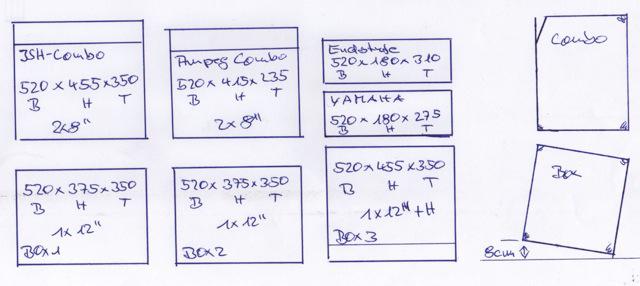 JSH-Combo
520 x 455 x 350
B H T
2x8"
Ampeg Combo
520 x 415 x 235
B H T
2 x 8"
Endstufe
520 x 180 x 310
B H T
YAMAHA
520 x 180 x 275
B H T
Combo
520 x 375 x 350
B H T
1 x 12"
Box 1
520 x 375 x 350
B H T
1 x 12"
Box 2
520 x 455 x 350
B H T
1 x 12" + H
Box 3
Box
8cm